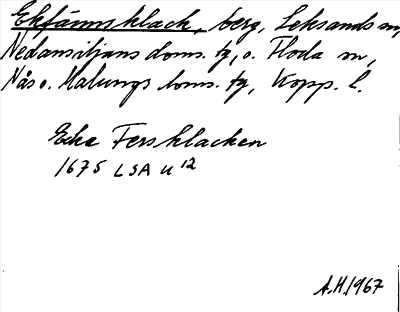 Ekfännsklack, berg, Leksands sn,
Nedansiljans doms. tg, o. Floda sn,
Nås o. Malungs doms. tg, Kopp. l.
Eke Fersklacken
1675 LSA U 12
A.H. 1967